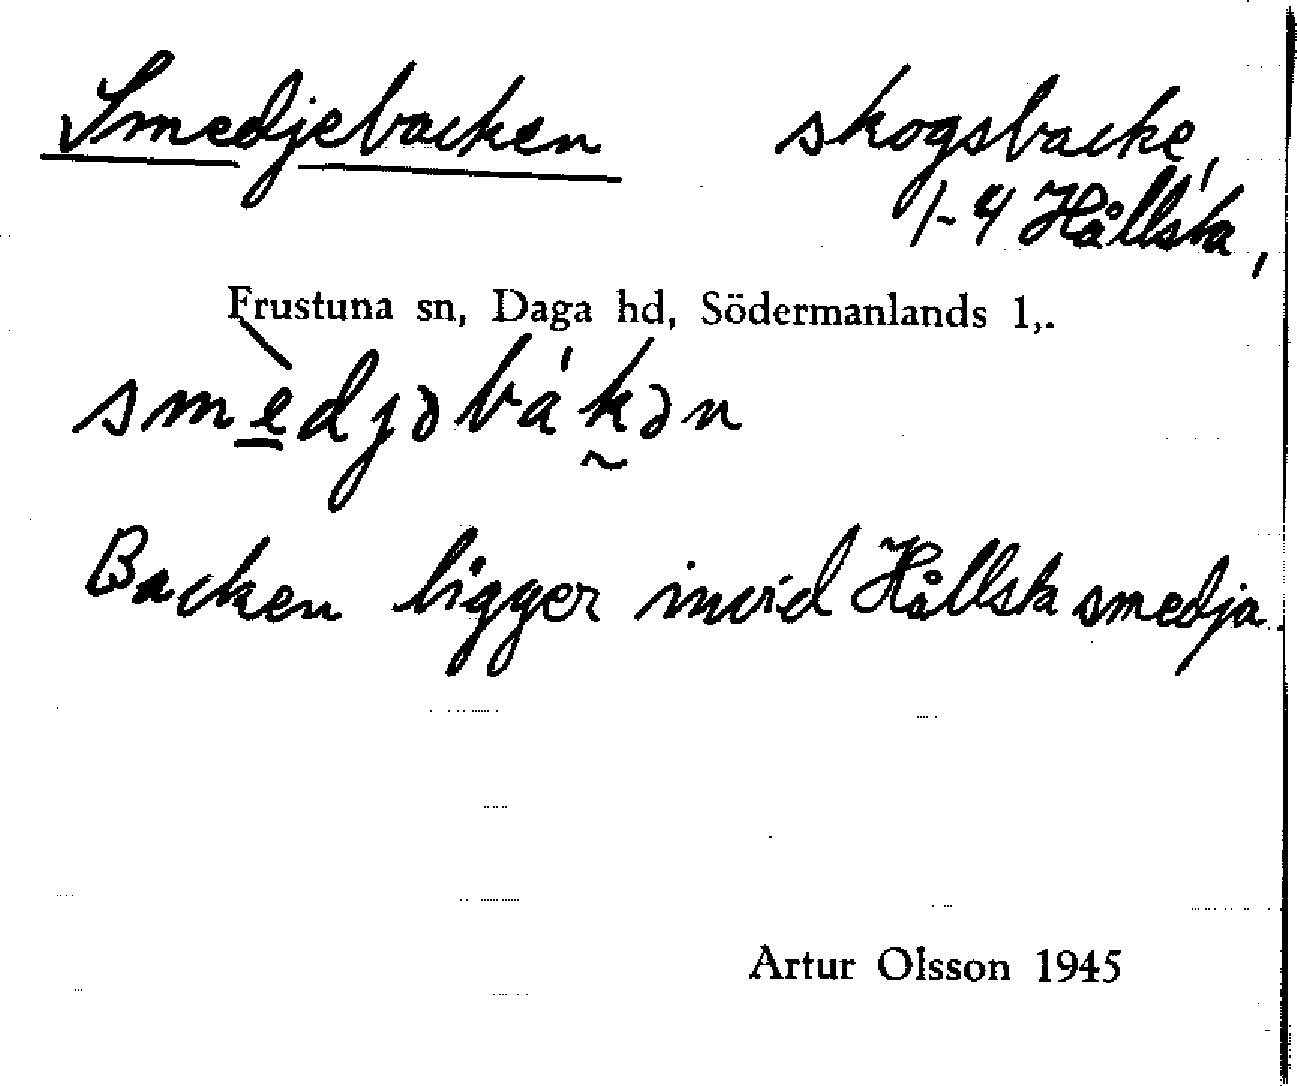 Smedjebacken skogsbacke,
1-4 Hållsta,
Frustuna sn, Daga hd, Södermanlands l,.
smèdjəbákən
Backen ligger invid Hållsta smedja.
Artur Olsson 1945